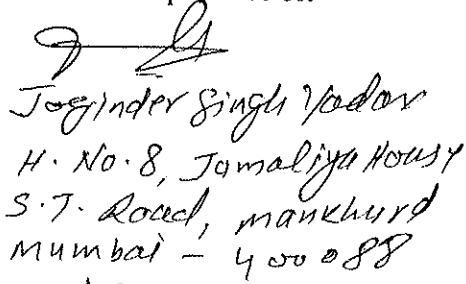 Joginder Singh Yadav
H. No. 8, Jamaliya House
S. T. Road, mankhurd
mumbai - 400088